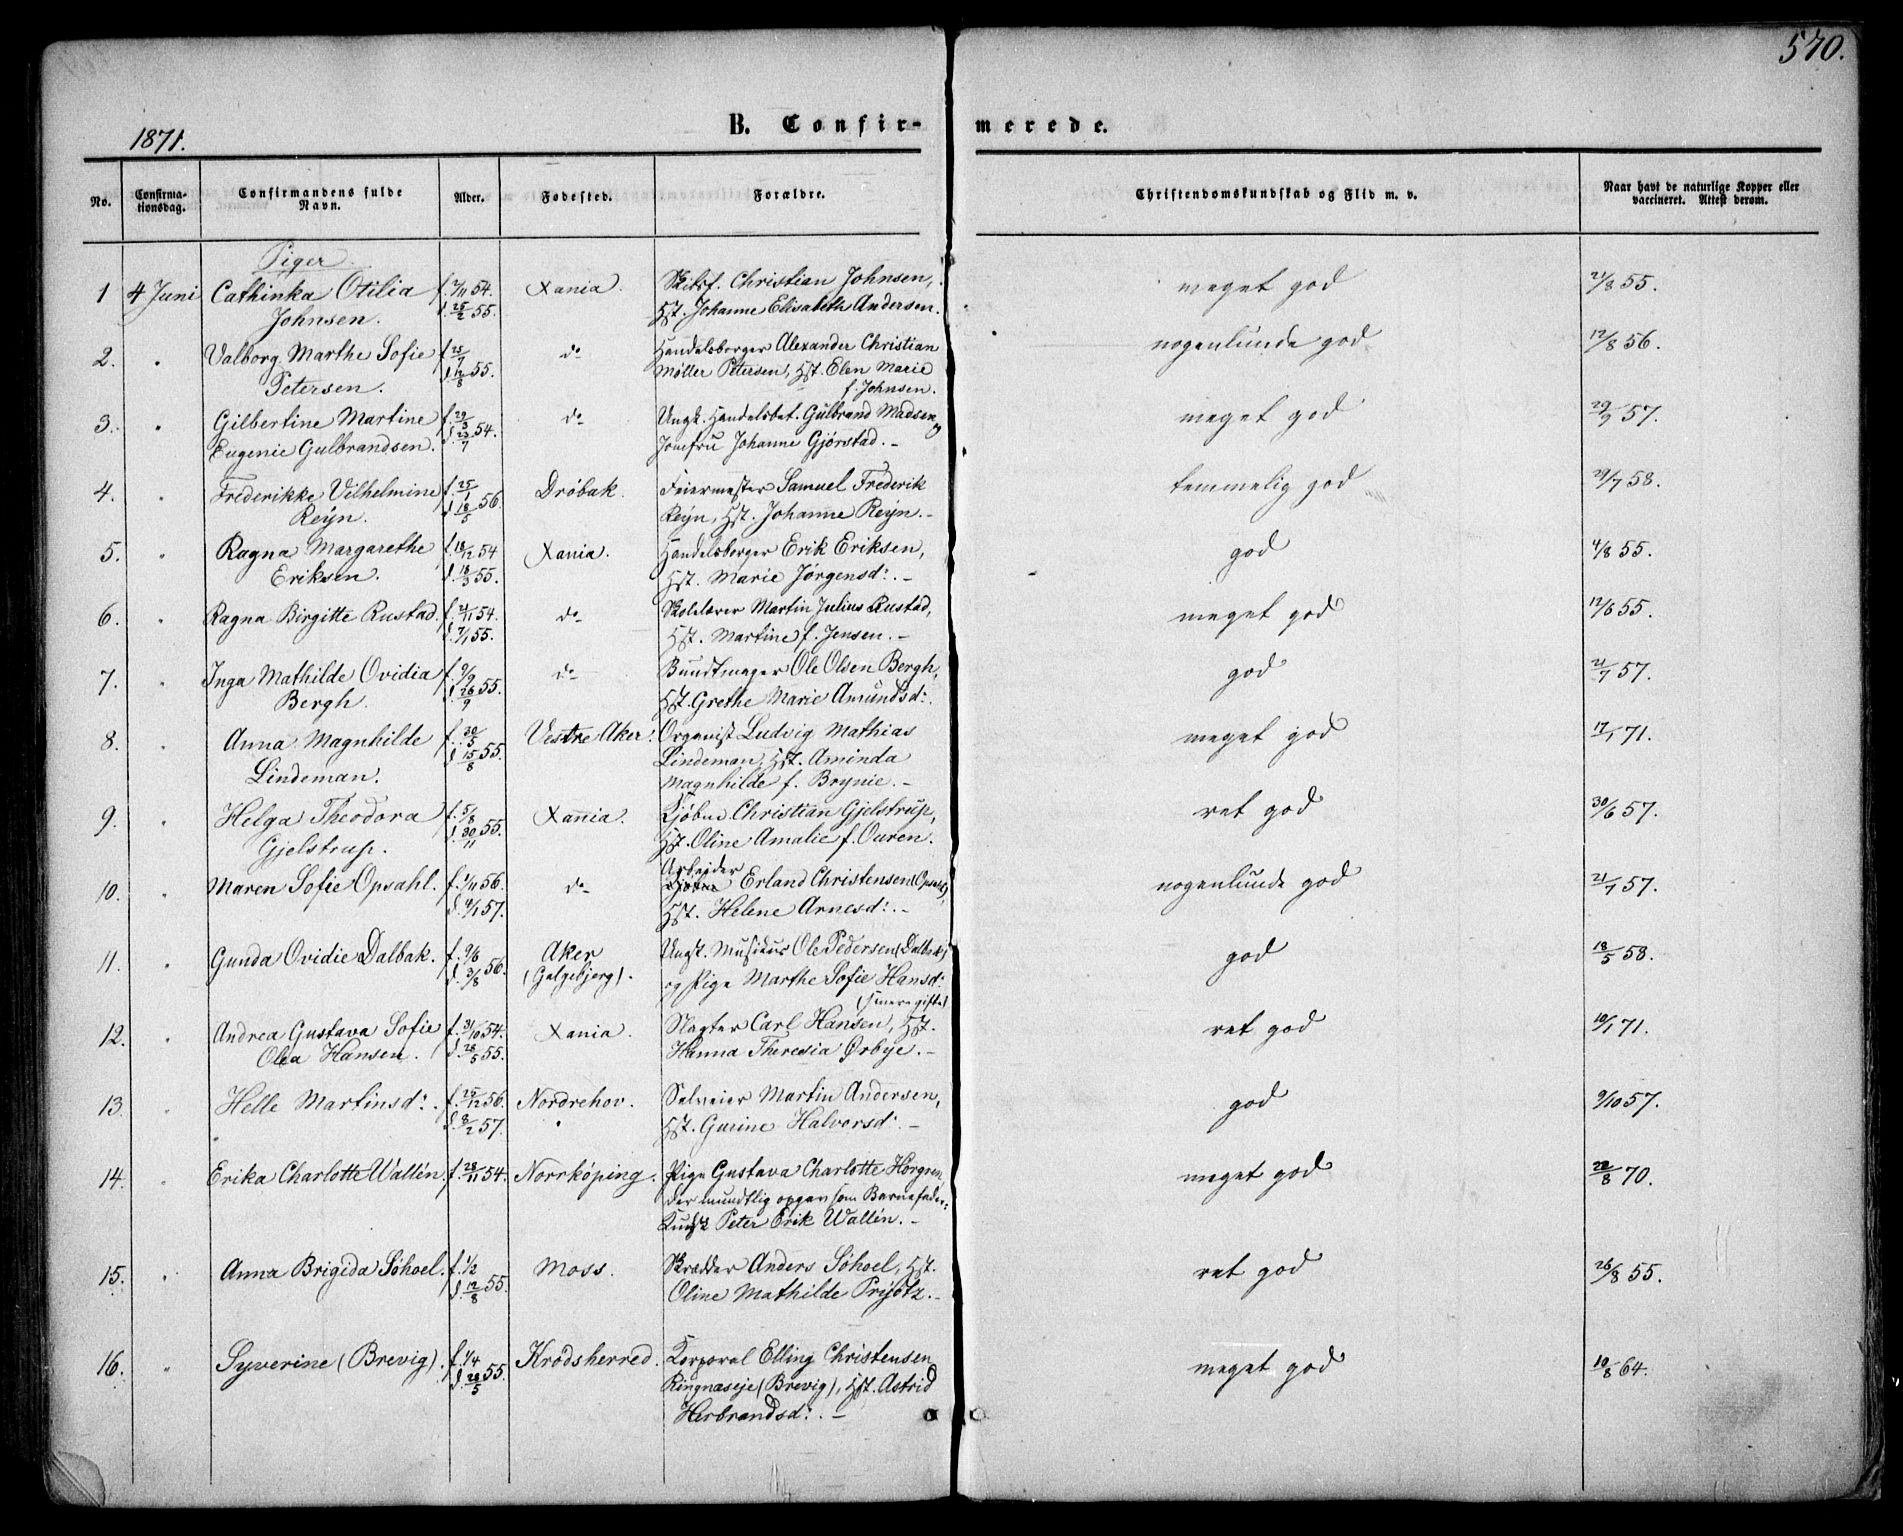 570.
1871.
B. Confir-
merede.
No.
Confirma-
tionsdag.
Confirmandens fulde
Navn.
Alder.
Fødested.
Forældre.
Christendomskundskab og Flid m. v.
Naar havt de naturlige Kopper eller
vaccineret. Attest derom.
Piger.
1 4 Juni Cathinka Otilia f. 7/11 54. Xania. Christian Johnsen, meget god 21/8 55.
Johnsen. d. 25/2 55. Hst. Johanne Elisabeth Andersen.
2. " Valborg Marthe Sofie f. 25/7 do Handelsborger Alexander Christian nogenlunde god 12/8 56.
Petersen. d. 12/8 55. Møller Petersen, Hst. Elen Marie
f. Johnsen.
3. " Gilbertine Martine f. 29/3 do Ungk. Handelsbet. Gulbrand Madsen og meget god 29/9 57.
Eugenie Gulbrandsen. d. 23/7 54. Jomfru Johanne Gjørstad. -
4. " Frederikke Vilhelmine f. 25/1 Drøbak. Feiermester Samuel Frederik temmelig god 29/7 58.
Reijn. d. 18/5 56. Reijn, Hst. Johanne Reijn. -
5. " Ragna Margarethe f. 18/12 54 Xania. Handelsborger Erik Eriksen, god 4/8 55.
Eriksen. d. 18/3 55. Hst. Marie Jørgensd: . -
6. " Ragna Birgitte Rustad. f. 21/11 54. do Skolelærer Martin Julius Rustad, meget god 12/6 55.
d. 7/1 55. Hst. Martine f. Jensen. -
7. " Inga Mathilde Ovidia f. 9/9 do Bundtmager Ole Olsen Bergh, god 21/7 57.
Bergh. d. 26/9 55. Hst. Grethe Marie Amundsd: .
8. " Anna Magnhilde f. 30/5 Vestre Aker. Organist Ludvig Mathias meget god 17/1 71.
Lindeman. d. 15/8 55. Lindeman, Hst. Aminda
Magnhilde f. Brynie. -
9. " Helga Theodora f. 5/8 Xania. Kjøbm. Christian Gjelstrup, ret god 30/6 57.
Gjelstrup. d. 30/11 55. Hst. Oline Amalie f. Ouren.
Arbeider
10. " Maren Sofie Opsahl. f. 1/11 56. do Erland Christensen (Opsahl), nogenlunde god 21/7 57.
d. 4/1 57. Hst. Helene Arnesd: . -
11. " Gunda Ovidie Dalbak. f. 9/6 Aker Ungk. Musikus Ole Pedersen (Dalbak) god 18/5 58.
d. 3/8 56. (Galgebjerg). og Pige Marthe Sofie Hansd:
(senere gifte)
12. " Andrea Gustava Sofie f. 31/10 54. Xania. Slagter Carl Hansen, Hst. ret god 10/1 71.
Olea Hansen. d. 28/5 55. Hanna Theresia Ørbye. -
13. " Helle Martinsd: . f. 25/12 56. Nordrehov. Selveier Martin Andersen, god 9/10 57.
d. 8/2 57. Hst. Gurine Halvorsd: -
14. " Erika Charlotte Wallén. f. 28/11 54. Norrköping. Pige Gustava Charlotte Horgren, meget god 22/8 70.
der mundtlig opgav som Barnefader:
Kudsk Peter Erik Wallén. -
15. " Anna Brigida Søhoel. f. 1/2 Moss. Skrædder Anders Søhoel, Hst. ret god 26/8 55.
d. 12/8 55. Oline Mathilde Prijdtz. -
16. " Syverine (Brevig). f. 1/4 Krødsherred. Korporal Elling Christensen meget god 10/8 64.
d. 28/5 55. Ringnæseje (Brevig), Hst. Astrid
Herbrandsd: . -